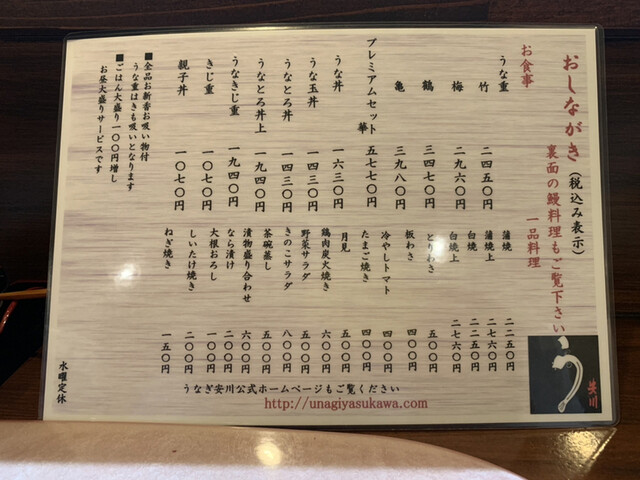 おしながき(税込み表示)
裏面の鰻料理もご覧下さい
お食事
うな重
竹 二四五〇円
梅 二九六〇円
鶴 三四七〇円
亀 三九八〇円
プレミアムセット
華 五七七〇円
うな丼 一六三〇円
うな玉丼 一四三〇円
うなとろ丼 一四三〇円
うなとろ丼上 一九四〇円
うなきじ重 一九四〇円
きじ重 一〇七〇円
親子丼 一〇七〇円
■全品お新香お吸い物付
うな重はきも吸いとなります
■ごはん大盛り一〇〇円増し
お昼大盛りサービスです
一品料理
蒲焼 二二五〇円
蒲焼上 二七六〇円
白焼 二二五〇円
白焼上 二七六〇円
とりわさ 五〇〇円
板わさ 四〇〇円
冷やしトマト 四〇〇円
たまご焼き 四〇〇円
月見 五〇〇円
鶏肉炭火焼き 六〇〇円
野菜サラダ 五〇〇円
きのこサラダ 八〇〇円
茶碗蒸し 五〇〇円
漬物盛り合わせ 六〇〇円
なら漬け 二〇〇円
大根おろし 一〇〇円
しいたけ焼き 二〇〇円
ねぎ焼き 一五〇円
水曜定休
うなぎ安川公式ホームページもご覧ください
http://unagiyasukawa.com
う
安川